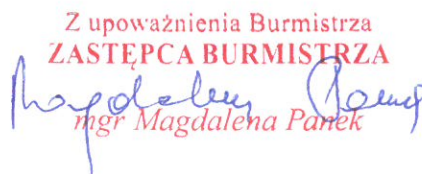 Z upoważnienia Burmistrza
ZASTĘPCA BURMISTRZA
Magdalena Panek
mgr Magdalena Panek